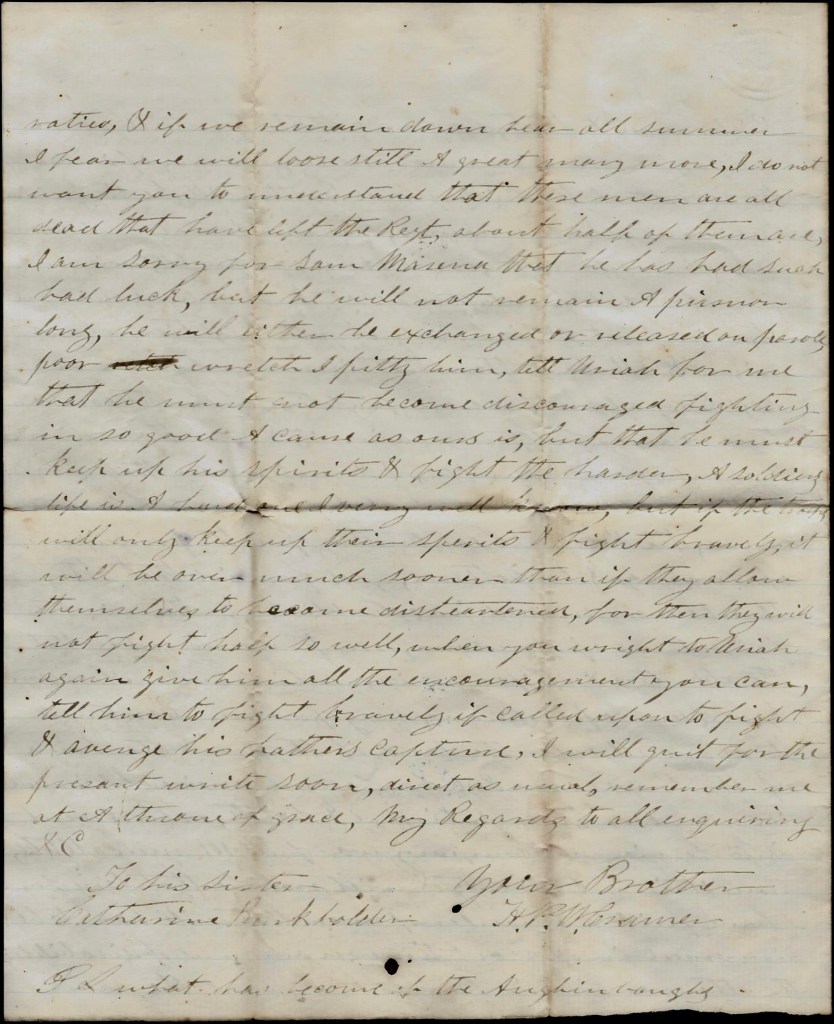 & if we remain down hear all summer
I fear we will loose still A great many more, I do not
want you to understand that these men are all
dead that have left the Regt, about half of them are,
I am sorry for Sam that he has had such
bad luck, but he will not remain A
long, he will either be exchanged or released on parole,
poor wretch I pitty him, tell Uriah for me
that he must not become discouraged fighting
in so good A cause as ours is, but that he must
keep up his spirits & fight the harder, A soldiers
life is A hard one I verry well know, but if the
will only keep up their spirits & fight bravely, it
will be over much sooner than if they allow
themselves to become disheartened, for then they will
not fight half so well, when you wright to Uriah
again give him all the encouragement you can,
tell him to fight bravely if called upon to fight
& avenge his fathers capture, I will quit for the
presant write soon, direct as usual, remember me
at A throne of grace, My Regards to all enquiring
&C
To his sister Your Brother
Catharine Burkholder H. P. W. Cramer
P S what has become of the Aughinbaughs